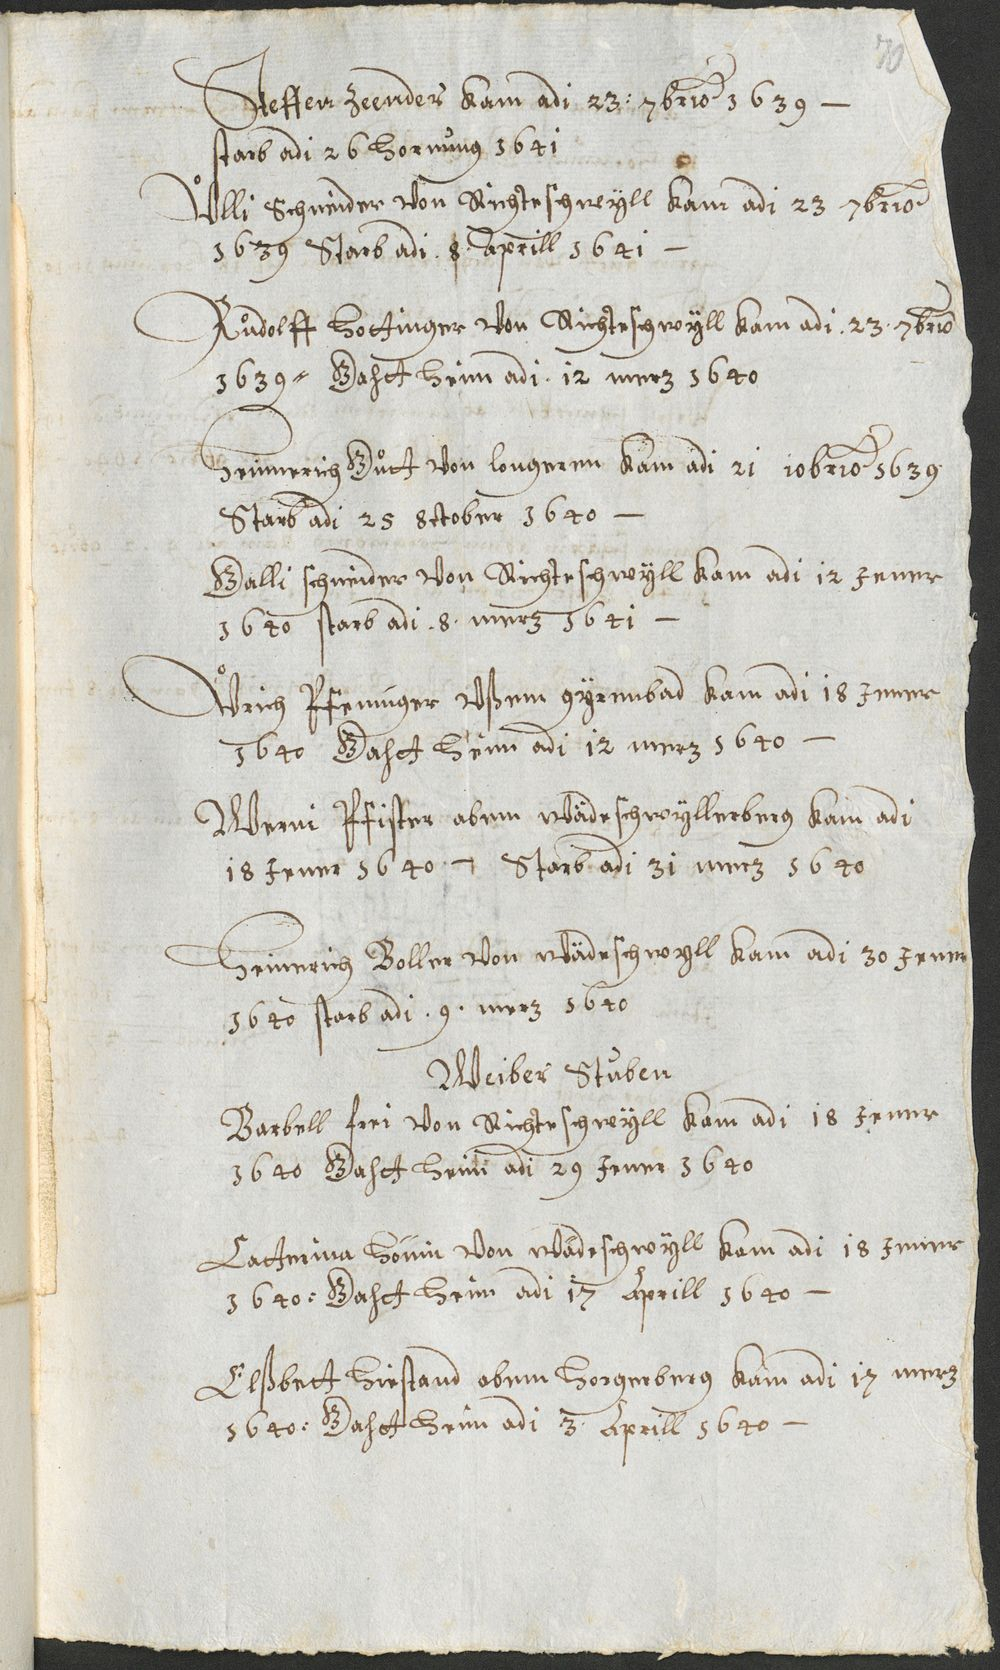 70
Steffen Zeender kam adi 23: 7brio 1639 —
starb adi 26 Hornung 1641
Ůlli Schnider von Richteschwÿll kam adi 23 7brio
1639 Starb adi . 8. Aprill 1641 —
Růdolff Hottinger von Richteschwÿll kam adi . 23. 7brio
1639 Gahtt Heim adi . 12 merz 1640
Heinnerich Gůtt von kam adi 21 10brio 1639
Starb adi 25 8ctober 1640 —
Galli schnider von Richteschwÿll kam adi 12 Jener
1640 starb adi . 8. merz 1641 —
Ůrich Pfeninger ußem gÿrenbad kam adi 18 Jener
1640 Gahtt Heim adi 12 merz 1640 —
Werni Pfister abem wädeschwÿllerberg kam adi
18 Jener 1640 — Starb adi 31 merz 1640
Heinerich Boller von wädeschwÿll kam adi 30 Jener
1640 starb adi . 9. merz 1640
Weiber Stuben
Barbell frei von Richteschwÿll kam adi 18 Jener
1640 Gahtt Heim adi 29 Jener 1640
Catterina von wädeschwÿll kam adi 18 Jener
1640: Gahtt Heim adi 17 Aprill 1640 —
Elßbett Hirstand abem Horgerberg kam adi 17 merz
1640: Gahtt Heim adi 3. Aprill 1640 —